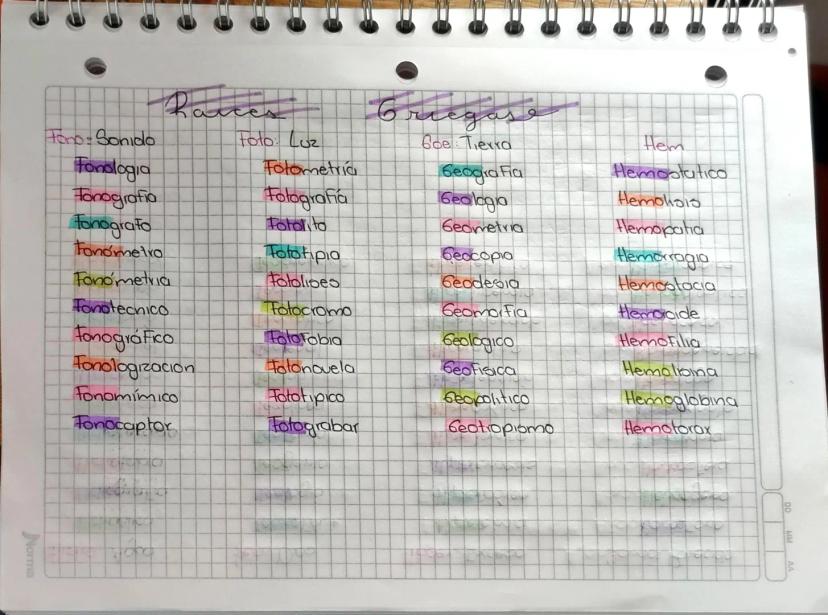 Raíces Griegas
Fono: Sonido
Fonologia
Fonografia
Fonografo
Fonómetro
Fonómetria
Fonotecnico
Fonográfico
Fonologizacion
Fonomímico
Fonocaptor
Foto: Luz
Fotometría
Fotografía
Fotolito
Fototipia
Fotolises
Fotocromo
Fotofobia
Fotonovela
Fototipico
Fotograbar
Goe: Tierra
Geografia
Geologia
Geometria
Geocopia
Geodesia
Geomorfia
Geologico
Geofisica
Geopolitico
Geotropismo
Hem
Hemostatico
Hemopatia
Hemorragia
Hemostacia
Hemofilia
Hemoglobina
Hemotorax
Norma
DD MM AA